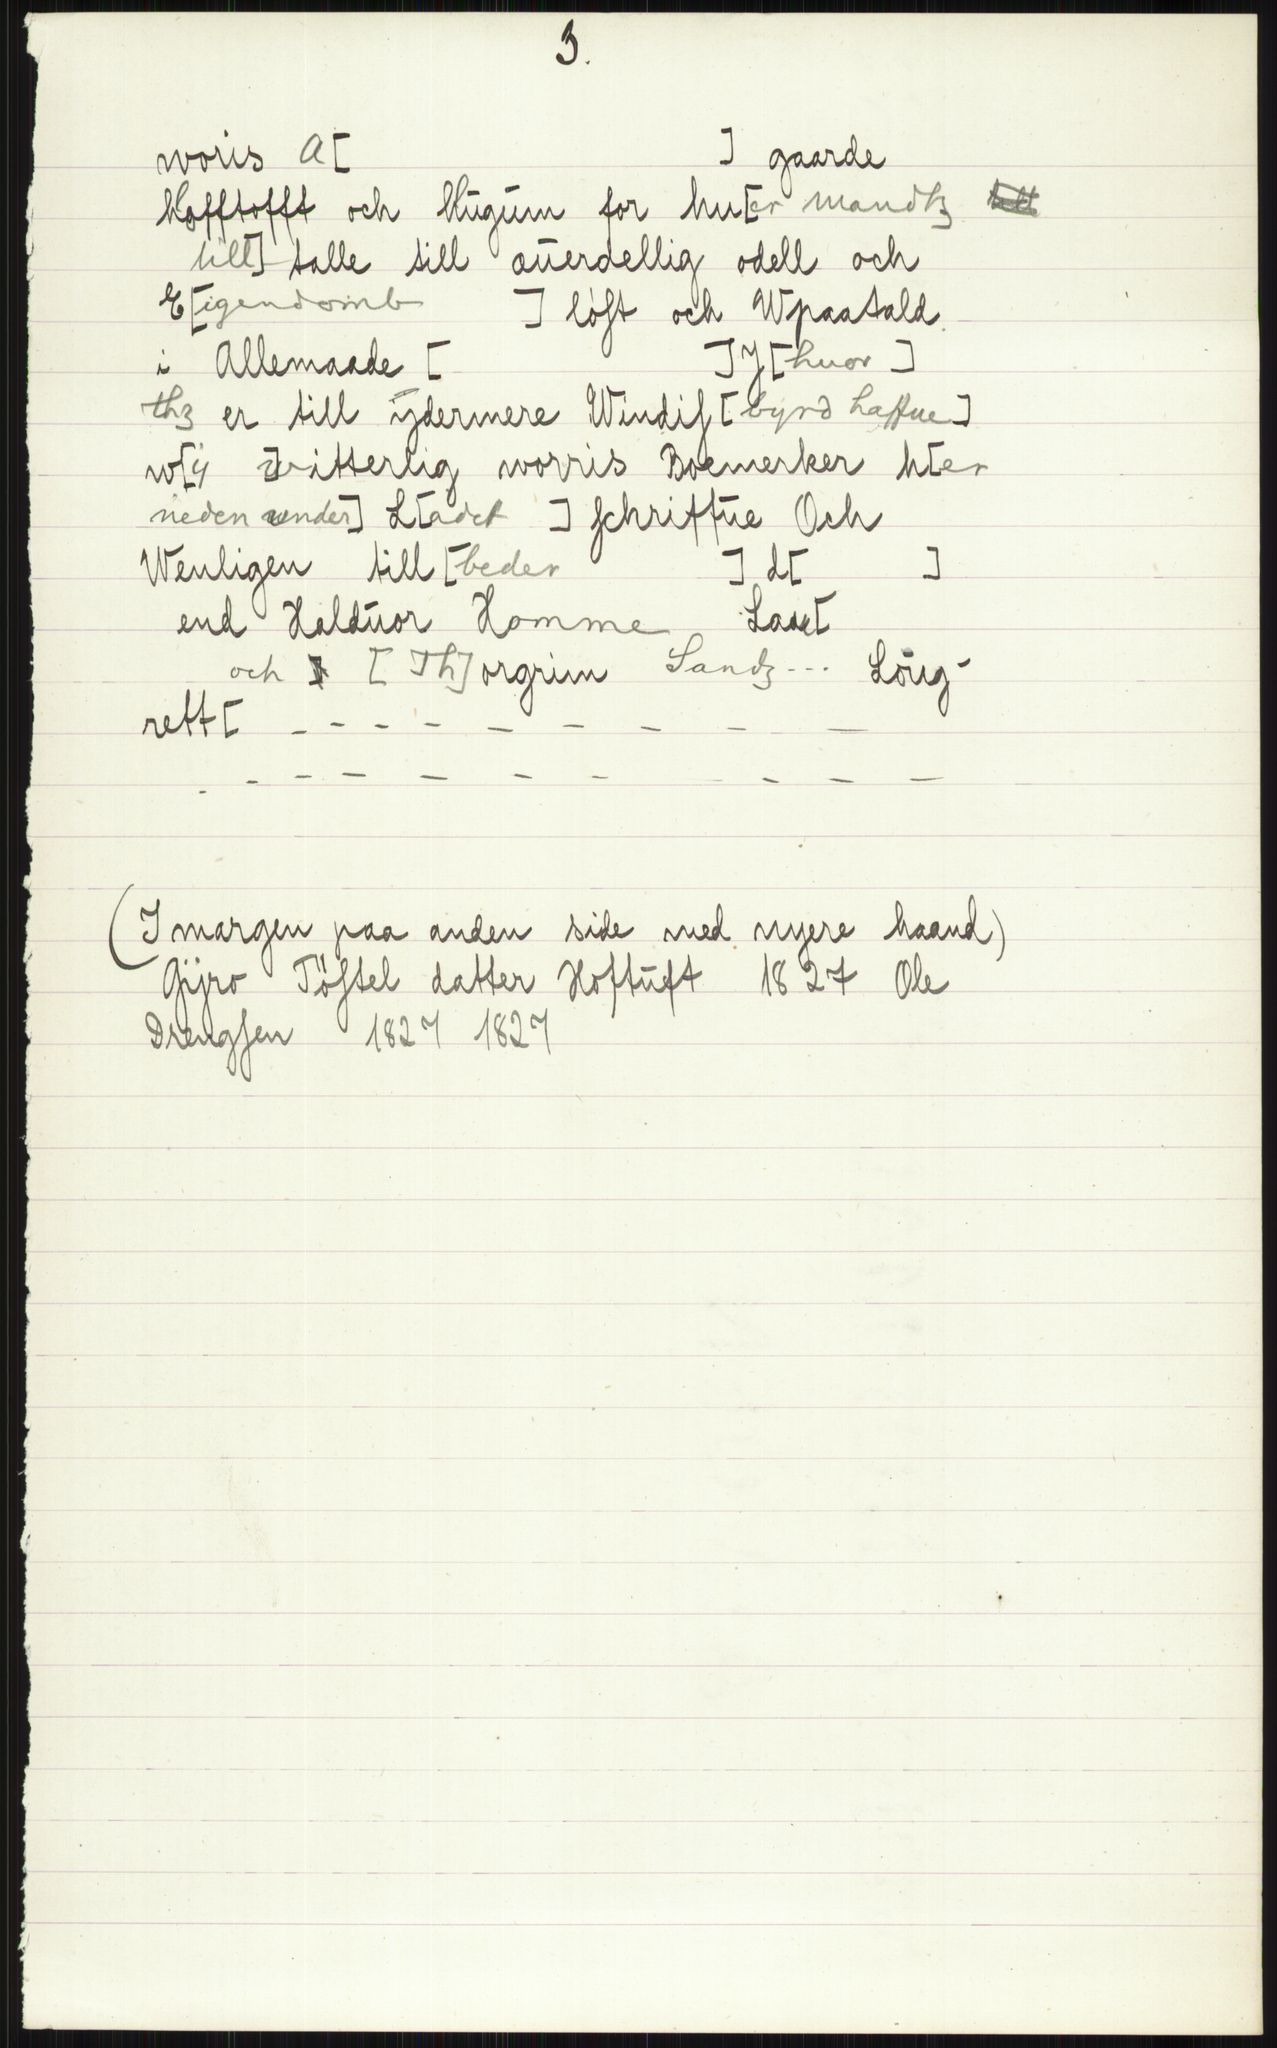 3.
woris A[ ] gaarde
Hofftofft och Hügüm for hu[er mandtz
till] talle till aüerdellig odell och
E[igendomb ] löst och Wpaatald
i Allemaade [ ] Y [huor]
thz er till ÿdermere Windis[byrd haffue]
w[ij w]itterlig worris Boemerker h[er
neden under] L[adet ] schriffüe Och
Wenligen till [beder ] d[ ]
end Haldüor Homme Laae[
och [Th]orgrim Sandz... Loüg-
rett[ - - - - - - - - -
- - - - - - - - - -
(I margen paa anden side med nyere haand)
Gÿro Töstel datter Hoftüft 1827 Ole
Drengsen 1827 1827